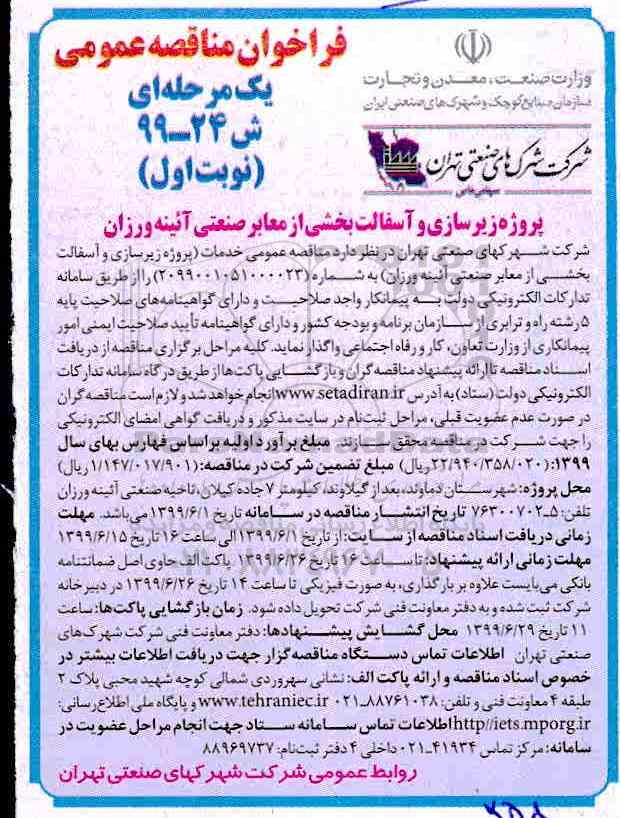 فراخوان مناقصه عمومی
یک مرحله‌ای
ش ۲۴-۹۹
(نوبت اول)
وزارت صنعت، معدن و تجارت
سازمان صنایع کوچک و شهرک‌های صنعتی ایران
شرکت شهرک‌های صنعتی تهران
سهامی خاص
پروژه زیرسازی و آسفالت بخشی از معابر صنعتی آئینه ورزان
شرکت شهرکهای صنعتی تهران در نظر دارد مناقصه عمومی خدمات (پروژه زیرسازی و آسفالت
بخشی از معابر صنعتی آئینه ورزان) به شماره (۲۰۹۹۰۰۱۰۵۱۰۰۰۰۲۳) را از طریق سامانه
تدارکات الکترونیکی دولت به پیمانکار واجد صلاحیت و دارای گواهینامه‌های صلاحیت پایه
۵ رشته راه و ترابری از سازمان برنامه و بودجه کشور و دارای گواهینامه تأیید صلاحیت ایمنی امور
پیمانکاری از وزارت تعاون، کار و رفاه اجتماعی واگذار نماید. کلیه مراحل برگزاری مناقصه از دریافت
اسناد مناقصه تا ارائه پیشنهاد مناقصه‌گران و بازگشایی پاکت‌ها از طریق درگاه سامانه تدارکات
الکترونیکی دولت (ستاد) به آدرس www.setadiran.ir انجام خواهد شد و لازم است مناقصه‌گران
در صورت عدم عضویت قبلی، مراحل ثبت‌نام در سایت مذکور و دریافت گواهی امضای الکترونیکی
را جهت شرکت در مناقصه محقق سازند. مبلغ برآورد اولیه براساس فهارس بهای سال
۱۳۹۹: (۲۲/۹۴۰/۳۵۸/۰۲۰ریال) مبلغ تضمین شرکت در مناقصه: (۱/۱۴۷/۰۱۷/۹۰۱ ریال)
محل پروژه: شهرستان دماوند، بعد از گیلاوند، کیلومتر ۷ جاده کیلان، ناحیه صنعتی آئینه ورزان
تلفن: ۵-۷۶۳۰۰۷۰۲ تاریخ انتشار مناقصه در سامانه تاریخ ۱۳۹۹/۶/۱ می‌باشد. مهلت
زمانی دریافت اسناد مناقصه از سایت: از تاریخ ۱۳۹۹/۶/۱ الی ساعت ۱۶ تاریخ ۱۳۹۹/۶/۱۵
مهلت زمانی ارائه پیشنهاد: تا ساعت ۱۶ تاریخ ۱۳۹۹/۶/۲۶ پاکت الف حاوی اصل ضمانتنامه
بانکی می‌بایست علاوه بر بارگذاری، به صورت فیزیکی تا ساعت ۱۴ تاریخ ۱۳۹۹/۶/۲۶ در دبیرخانه
شرکت ثبت شده و به دفتر معاونت فنی شرکت تحویل داده شود. زمان بازگشایی پاکت‌ها: ساعت
۱۱ تاریخ ۱۳۹۹/۶/۲۹ محل گشایش پیشنهادها: دفتر معاونت فنی شرکت شهرک‌های
صنعتی تهران اطلاعات تماس دستگاه مناقصه‌گزار جهت دریافت اطلاعات بیشتر در
خصوص اسناد مناقصه و ارائه پاکت الف: نشانی سهروردی شمالی کوچه شهید محبی پلاک ۲
طبقه ۴ معاونت فنی و تلفن: ۸۸۷۶۱۰۳۸-۰۲۱ www.tehraniec.ir و پایگاه ملی اطلاع‌رسانی:
http//iets.mporg.ir اطلاعات تماس سامانه ستاد جهت انجام مراحل عضویت در
سامانه: مرکز تماس ۴۱۹۳۴-۰۲۱ داخلی ۴ دفتر ثبت‌نام: ۸۸۹۶۹۷۳۷
روابط عمومی شرکت شهرکهای صنعتی تهران